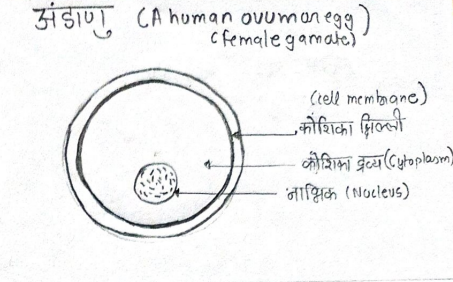 अंडाणु (A human ovum or egg)
(female gamate)
(cell membrane)
कोशिका झिल्ली
कोशिका द्रव्य (Cytoplasm)
नाभिक (Nucleus)